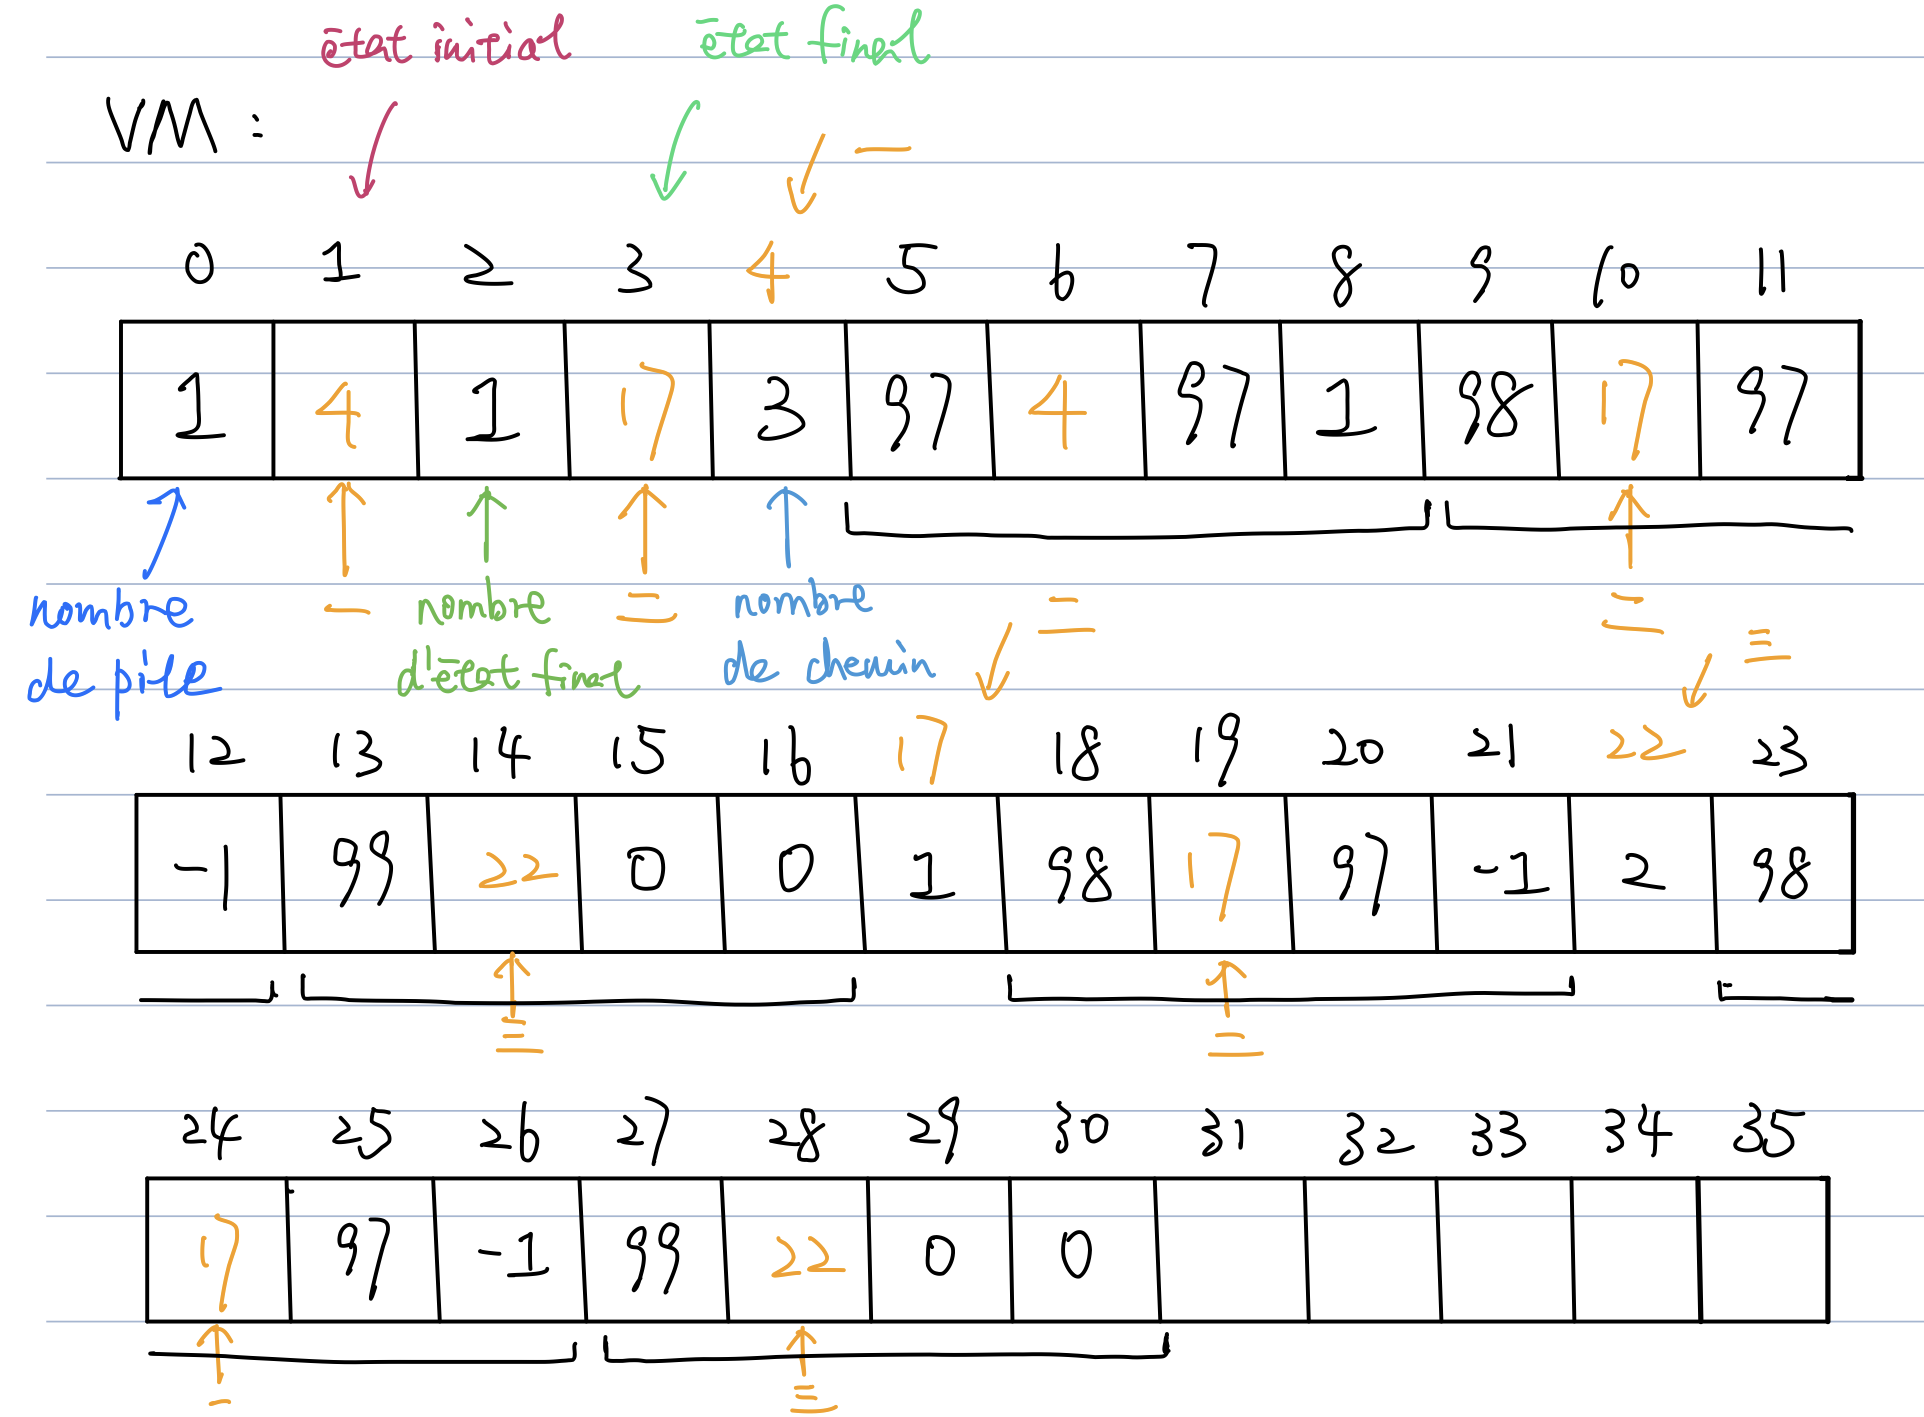 état initial état final
VM :
一
0 1 2 3 4 5 6 7 8 9 10 11
1 4 1 17 3 97 4 97 1 98 17 97
一 nombre 二 nombre 二 二
nombre
de pile d'état final de chemin 三
12 13 14 15 16 17 18 19 20 21 22 23
-1 99 22 0 0 1 98 17 97 -1 2 98
三 二
24 25 26 27 28 29 30 31 32 33 34 35
17 97 -1 99 22 0 0
二 三